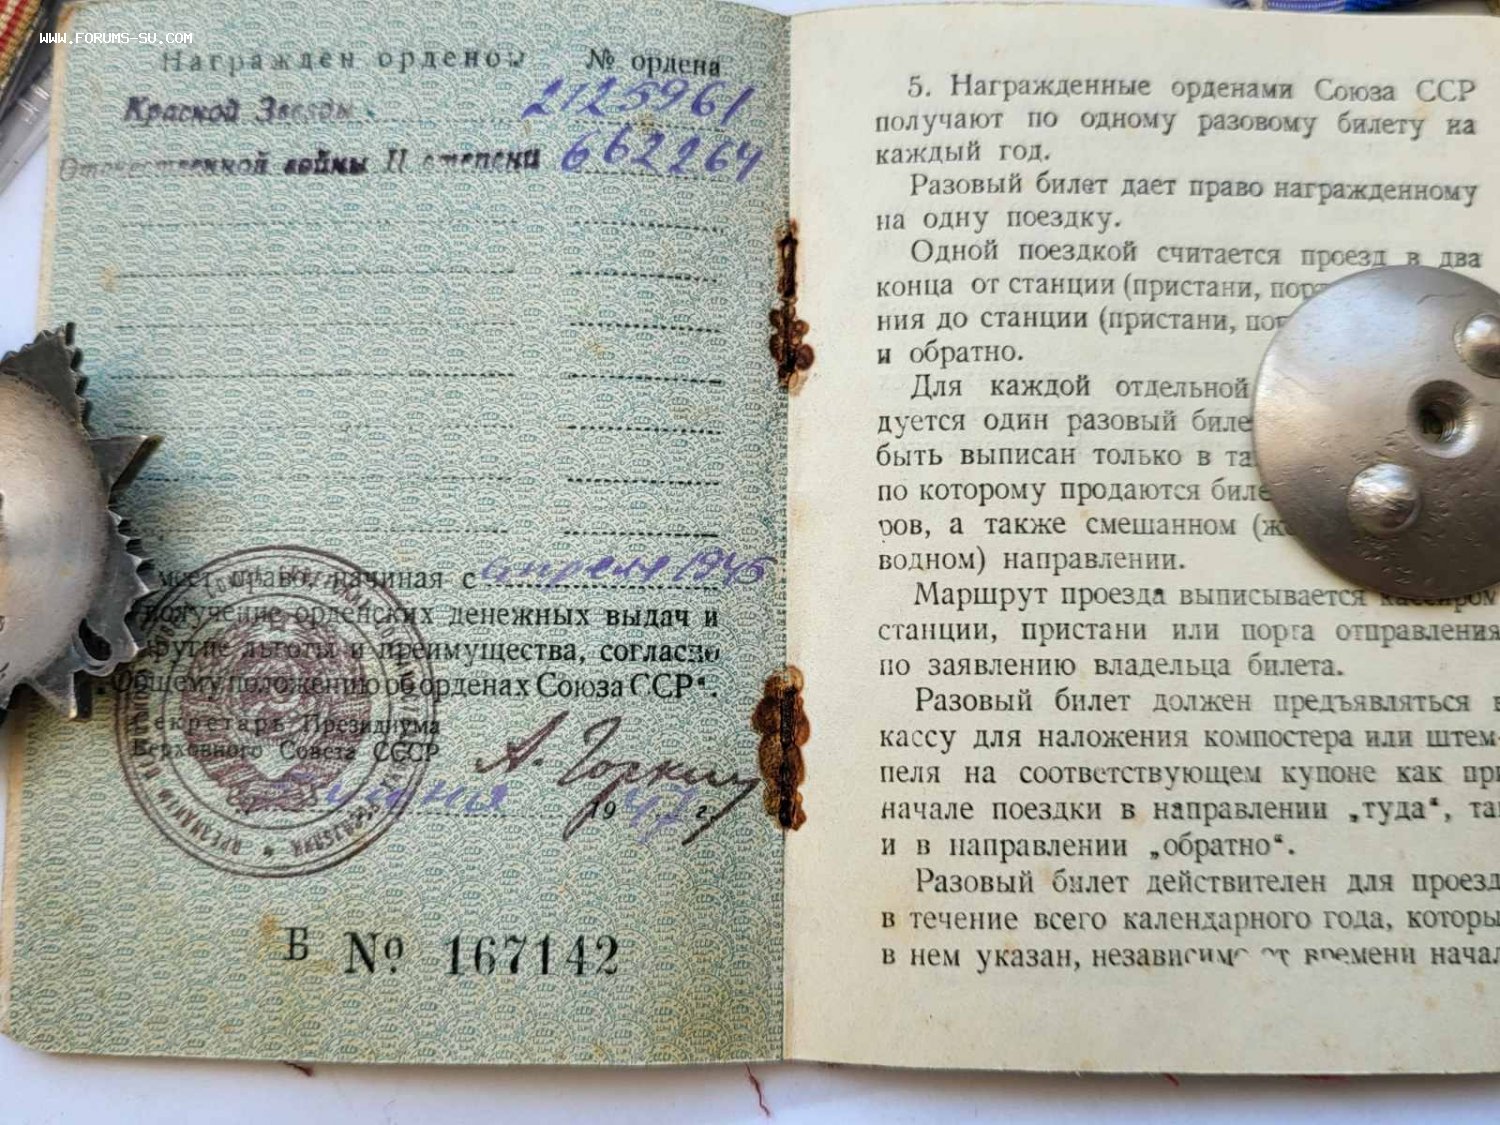 WWW.FORUMS-SU.COM
Награжден орденом № ордена
Красной Звезды. 2125961
Отечественной войны II степени 662264
имеет право, начиная с апреля 1945
получение орденских денежных выдач и
другие льготы и преимущества, согласно
„Общему положению об орденах Союза ССР“.
Секретарь Президиума
Верховного Совета СССР
А. Горкин
19 47 г.
Б № 167142
5. Награжденные орденами Союза ССР
получают по одному разовому билету на
каждый год.
Разовый билет дает право награжденному
на одну поездку.
Одной поездкой считается проезд в два
конца от станции (пристани, пор
ния до станции (пристани, пор
и обратно.
Для каждой отдельной
дуется один разовый биле
быть выписан только в та
по которому продаются биле
ров, а также смешанном (же
водном) направлении.
Маршрут проезда выписывается кассиром
станции, пристани или порта отправления
по заявлению владельца билета.
Разовый билет должен предъявляться в
кассу для наложения компостера или штем-
пеля на соответствующем купоне как при
начале поездки в направлении „туда“, так
и в направлении „обратно“.
Разовый билет действителен для проезд
в течение всего календарного года, которы
в нем указан, независимо от времени начал